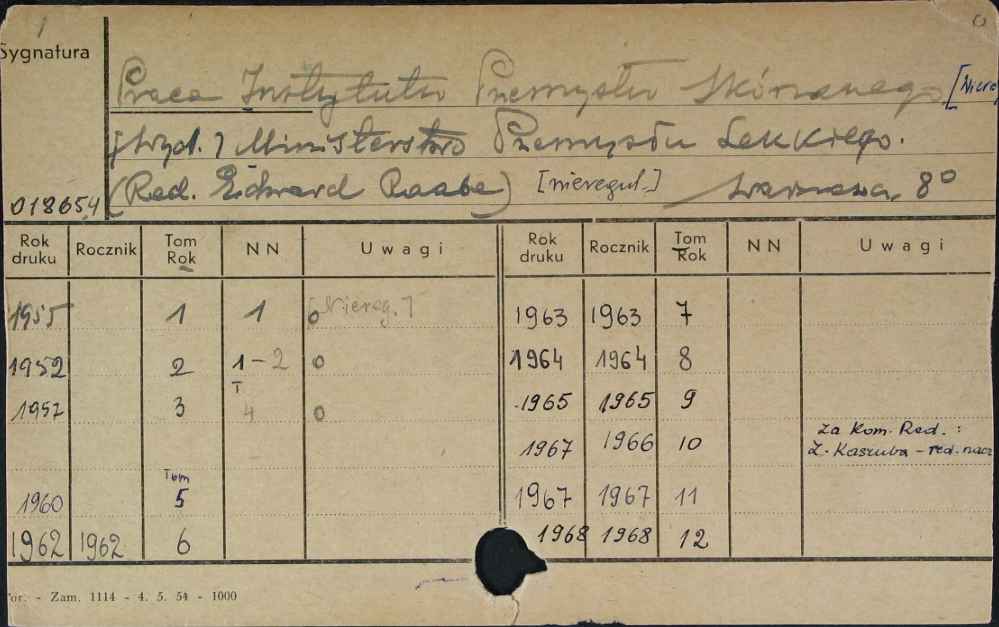 1
Sygnatura
Prace Instytutu Przemysłu Skórzanego [Niereg
[Wyd.] Ministerstwo Przemysłu Lekkiego.
(Red. Edward Raabe) [nieregul.] Warszawa, 8°
018654
Rok druku Rocznik Tom Rok NN Uwagi Rok druku Rocznik Tom Rok NN Uwagi
1955 1 1 [Niereg.] 1963 1963 7
1952 2 1-2 0 1964 1964 8
1957 3 T 4 0 1965 1965 9
1967 1966 10 za Kom. Red.: Z. Kaszuba - red. nacz
1960 Tom 5 1967 1967 11
1962 1962 6 1968 1968 12
- Zam. 1114 - 4. 5. 54 - 1000